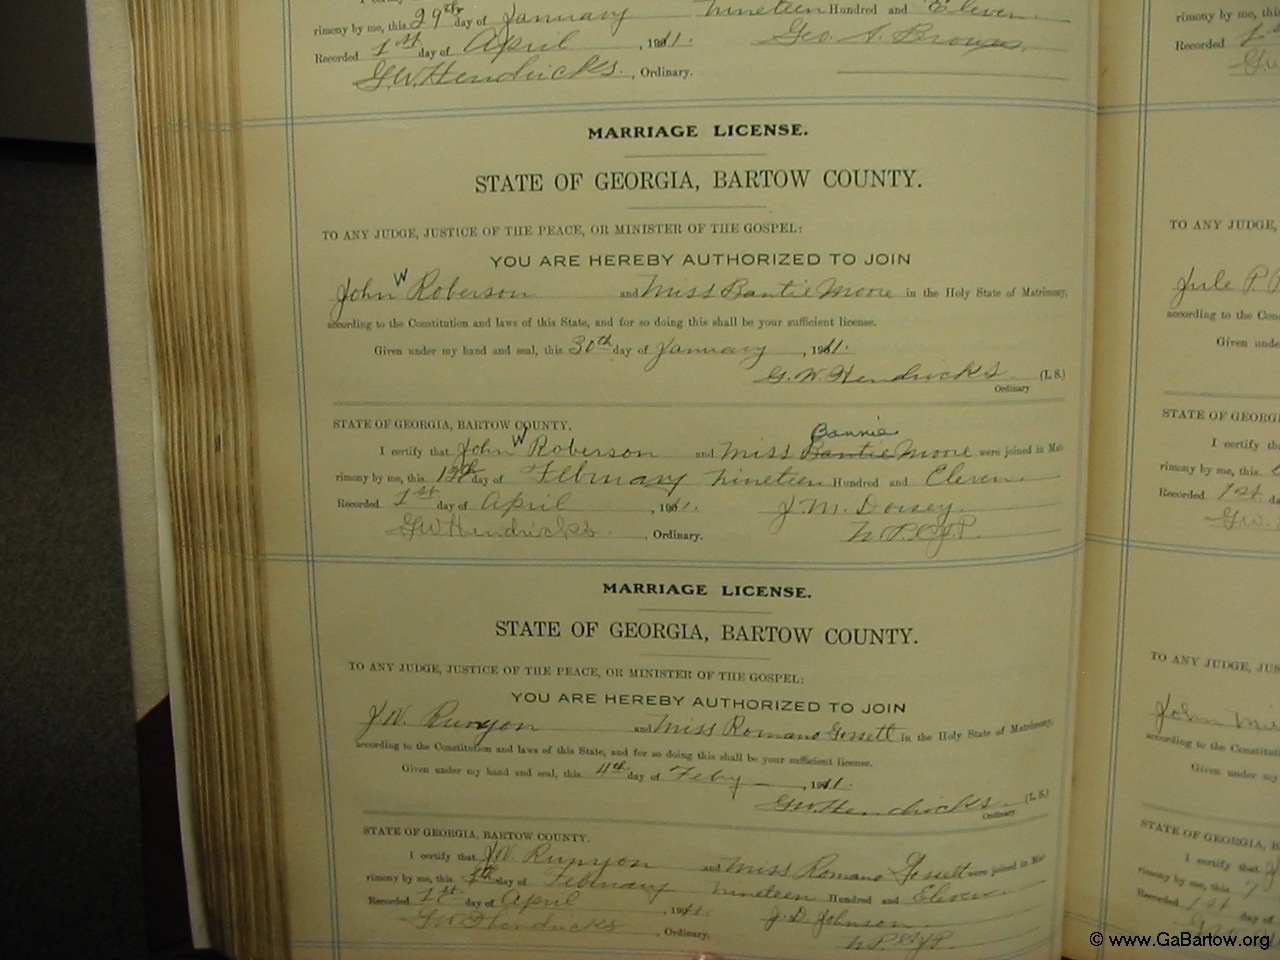 rimony by me, this 29th day of January Nineteen Hundred and Eleven
Recorded 1st day of April, 1911. Geo. S. Brown,
G.W. Hendricks., Ordinary.
MARRIAGE LICENSE.
STATE OF GEORGIA, BARTOW COUNTY.
TO ANY JUDGE, JUSTICE OF THE PEACE, OR MINISTER OF THE GOSPEL:
YOU ARE HEREBY AUTHORIZED TO JOIN
John W Roberson and Miss Bantie Moore in the Holy State of Matrimony,
according to the Constitution and laws of this State, and for so doing this shall be your sufficient license.
Given under my hand and seal, this 30th day of January, 1911.
G.W. Hendricks (L.S.)
Ordinary
STATE OF GEORGIA, BARTOW COUNTY.
I certify that John W Roberson and Miss Bantie Bannie Moore were joined in Mat-
rimony by me, this day of February Nineteen Hundred and Eleven
Recorded 1st day of April, 1911. J.M. Dorsey.
GW Hendricks, Ordinary. N.P. & J.P.
MARRIAGE LICENSE.
STATE OF GEORGIA, BARTOW COUNTY.
TO ANY JUDGE, JUSTICE OF THE PEACE, OR MINISTER OF THE GOSPEL:
YOU ARE HEREBY AUTHORIZED TO JOIN
J.W. Runyon and Miss Romano Gossett in the Holy State of Matrimony,
according to the Constitution and laws of this State, and for so doing this shall be your sufficient license.
Given under my hand and seal, this 4th day of Feby, 1911.
GW Hendricks (L.S.)
Ordinary
STATE OF GEORGIA, BARTOW COUNTY.
I certify that J.W. Runyon and Miss Romano Gossett were joined in Mat-
rimony by me, this day of February Nineteen Hundred and Eleven
Recorded 1st day of April, 1911. J.D. Johnson
GW Hendricks, Ordinary. N.P. & J.P.
rimony by me, this
Recorded
TO ANY JUDGE,
Jule P
according to the Cons
Given unde
STATE OF GEORG
I certify
rimony by me, this
Recorded 1st. da
GW.
TO ANY JUDGE, JUS
John
according to the Constitut
Given under my
STATE OF GEORGIA, B
I certify that
rimony by me, this 7
Recorded 1st day of
© www.GaBartow.org